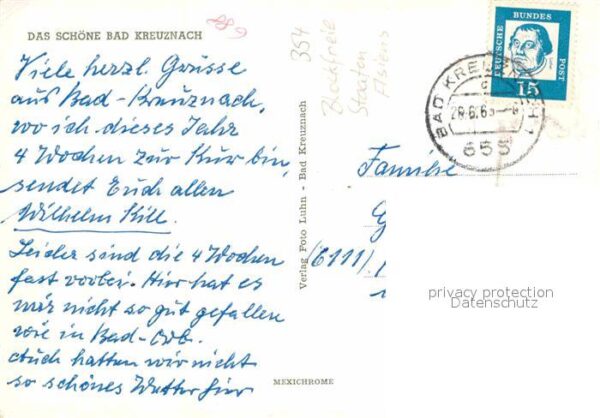 DAS SCHÖNE BAD KREUZNACH
Viele herzl. Grüsse
aus Bad-Kreuznach,
wo ich dieses Jahr
4 Wochen zur Kur bin,
sendet Euch allen
Wilhelm Kill.
Leider sind die 4 Wochen
fast vorbei. Hier hat es
mir nicht so gut gefallen
wie in Bad-Orb.
Auch hatten wir nicht
so schönes Wetter hier
MEXICHROME
Verlag Foto Luhn - Bad Kreuznach
354
Blockfreie
Staaten
Asiens
DEUTSCHE
BUNDES
POST
15
BAD KREUZNACH 1
c
655
Familie
(6111)
privacy protection
Datenschutz